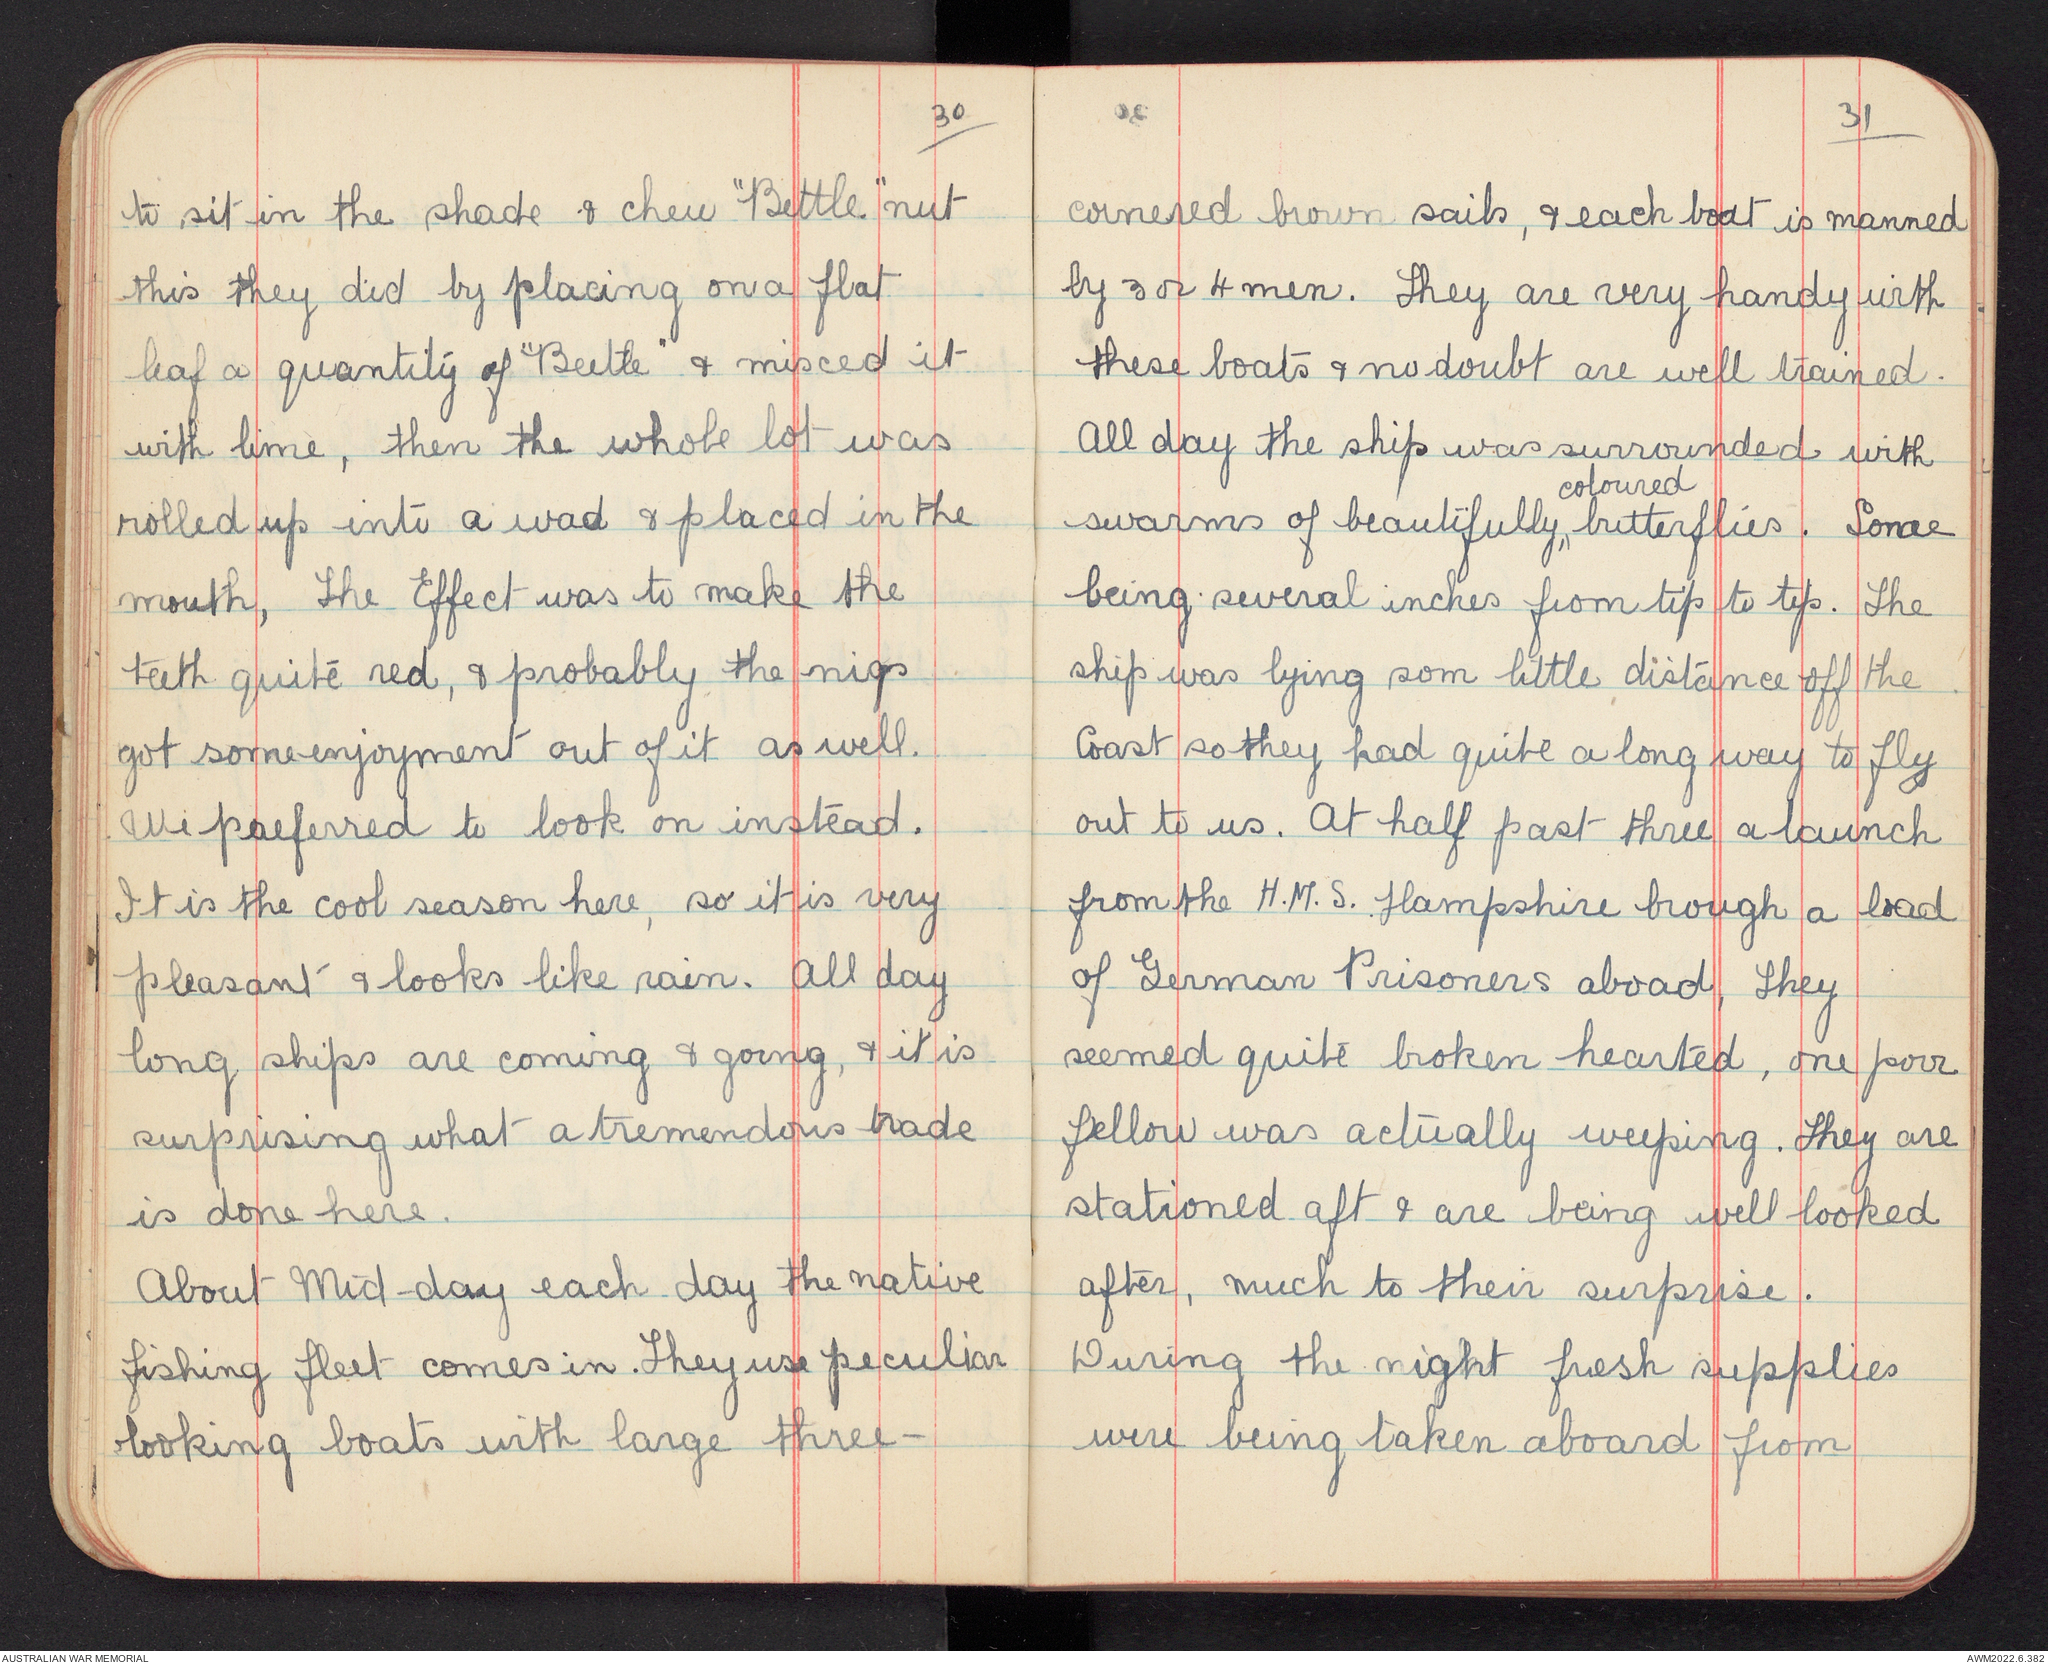 30
to sit in the shade & chew "Bettle" nut
this they did by placing on a flat
leaf a quantity of "Beetle" & misced it
with lime, then the whole lot was
rolled up into a wad & placed in the
mouth, The Effect was to make the
teeth quite red, & probably the nigs
got some enjoyment out of it as well.
We preferred to look on instead.
It is the cool season here, so it is very
pleasant & looks like rain. All day
long ships are coming & going, & it is
surprising what a tremendous trade
is done here.
About Mid-day each day the native
fishing fleet comes in. They use peculiar
looking boats with large three-
31
cornered brown sails, & each boat is manned
by 3 or 4 men. They are very handy with
these boats & no doubt are well trained.
All day the ship was surrounded with
coloured
swarms of beautifully, butterflies. Some
being several inches from tip to tip. The
ship was lying som little distance off the
Coast so they had quite a long way to fly
out to us. At half past three a launch
from the H.M.S. Hampshire brough a load
of German Prisoners aboad, They
seemed quite broken hearted, one poor
fellow was actually weeping. They are
stationed aft & are being well looked
after, much to their surprise.
During the night fresh supplies
were being taken aboard from
AUSTRALIAN WAR MEMORIAL
AWM2022.6.382